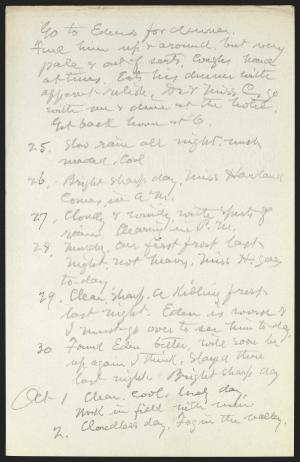 Go to Edens for dinner.
Find him up & around, but very
pale & out of sorts. Coughs hard
at times. Eats his dinner with
apparent relish. Dr & Miss C. go
with me & dine at the hotel.
Get back home at 6.
25. Slow rain all night, much
needed, cool
26. Bright sharp day, Miss Haviland
comes in a.m.
27. Cloudy & windy with spurts of
rain. Clearing in P.M.
28. Sunday, our first frost last
night, not heavy, Miss H. goes
to-day
29. Clear, sharp. A killing frost
last night. Eden is worse &
I must go over to see him to-day,
30 Found Eden better, will soon be
up again I think, Stayed there
last night. Bright sharp day
Oct 1 Clear, cool, lovely day,
Work in field with men.
2. Cloudless day. Fog in the valley.